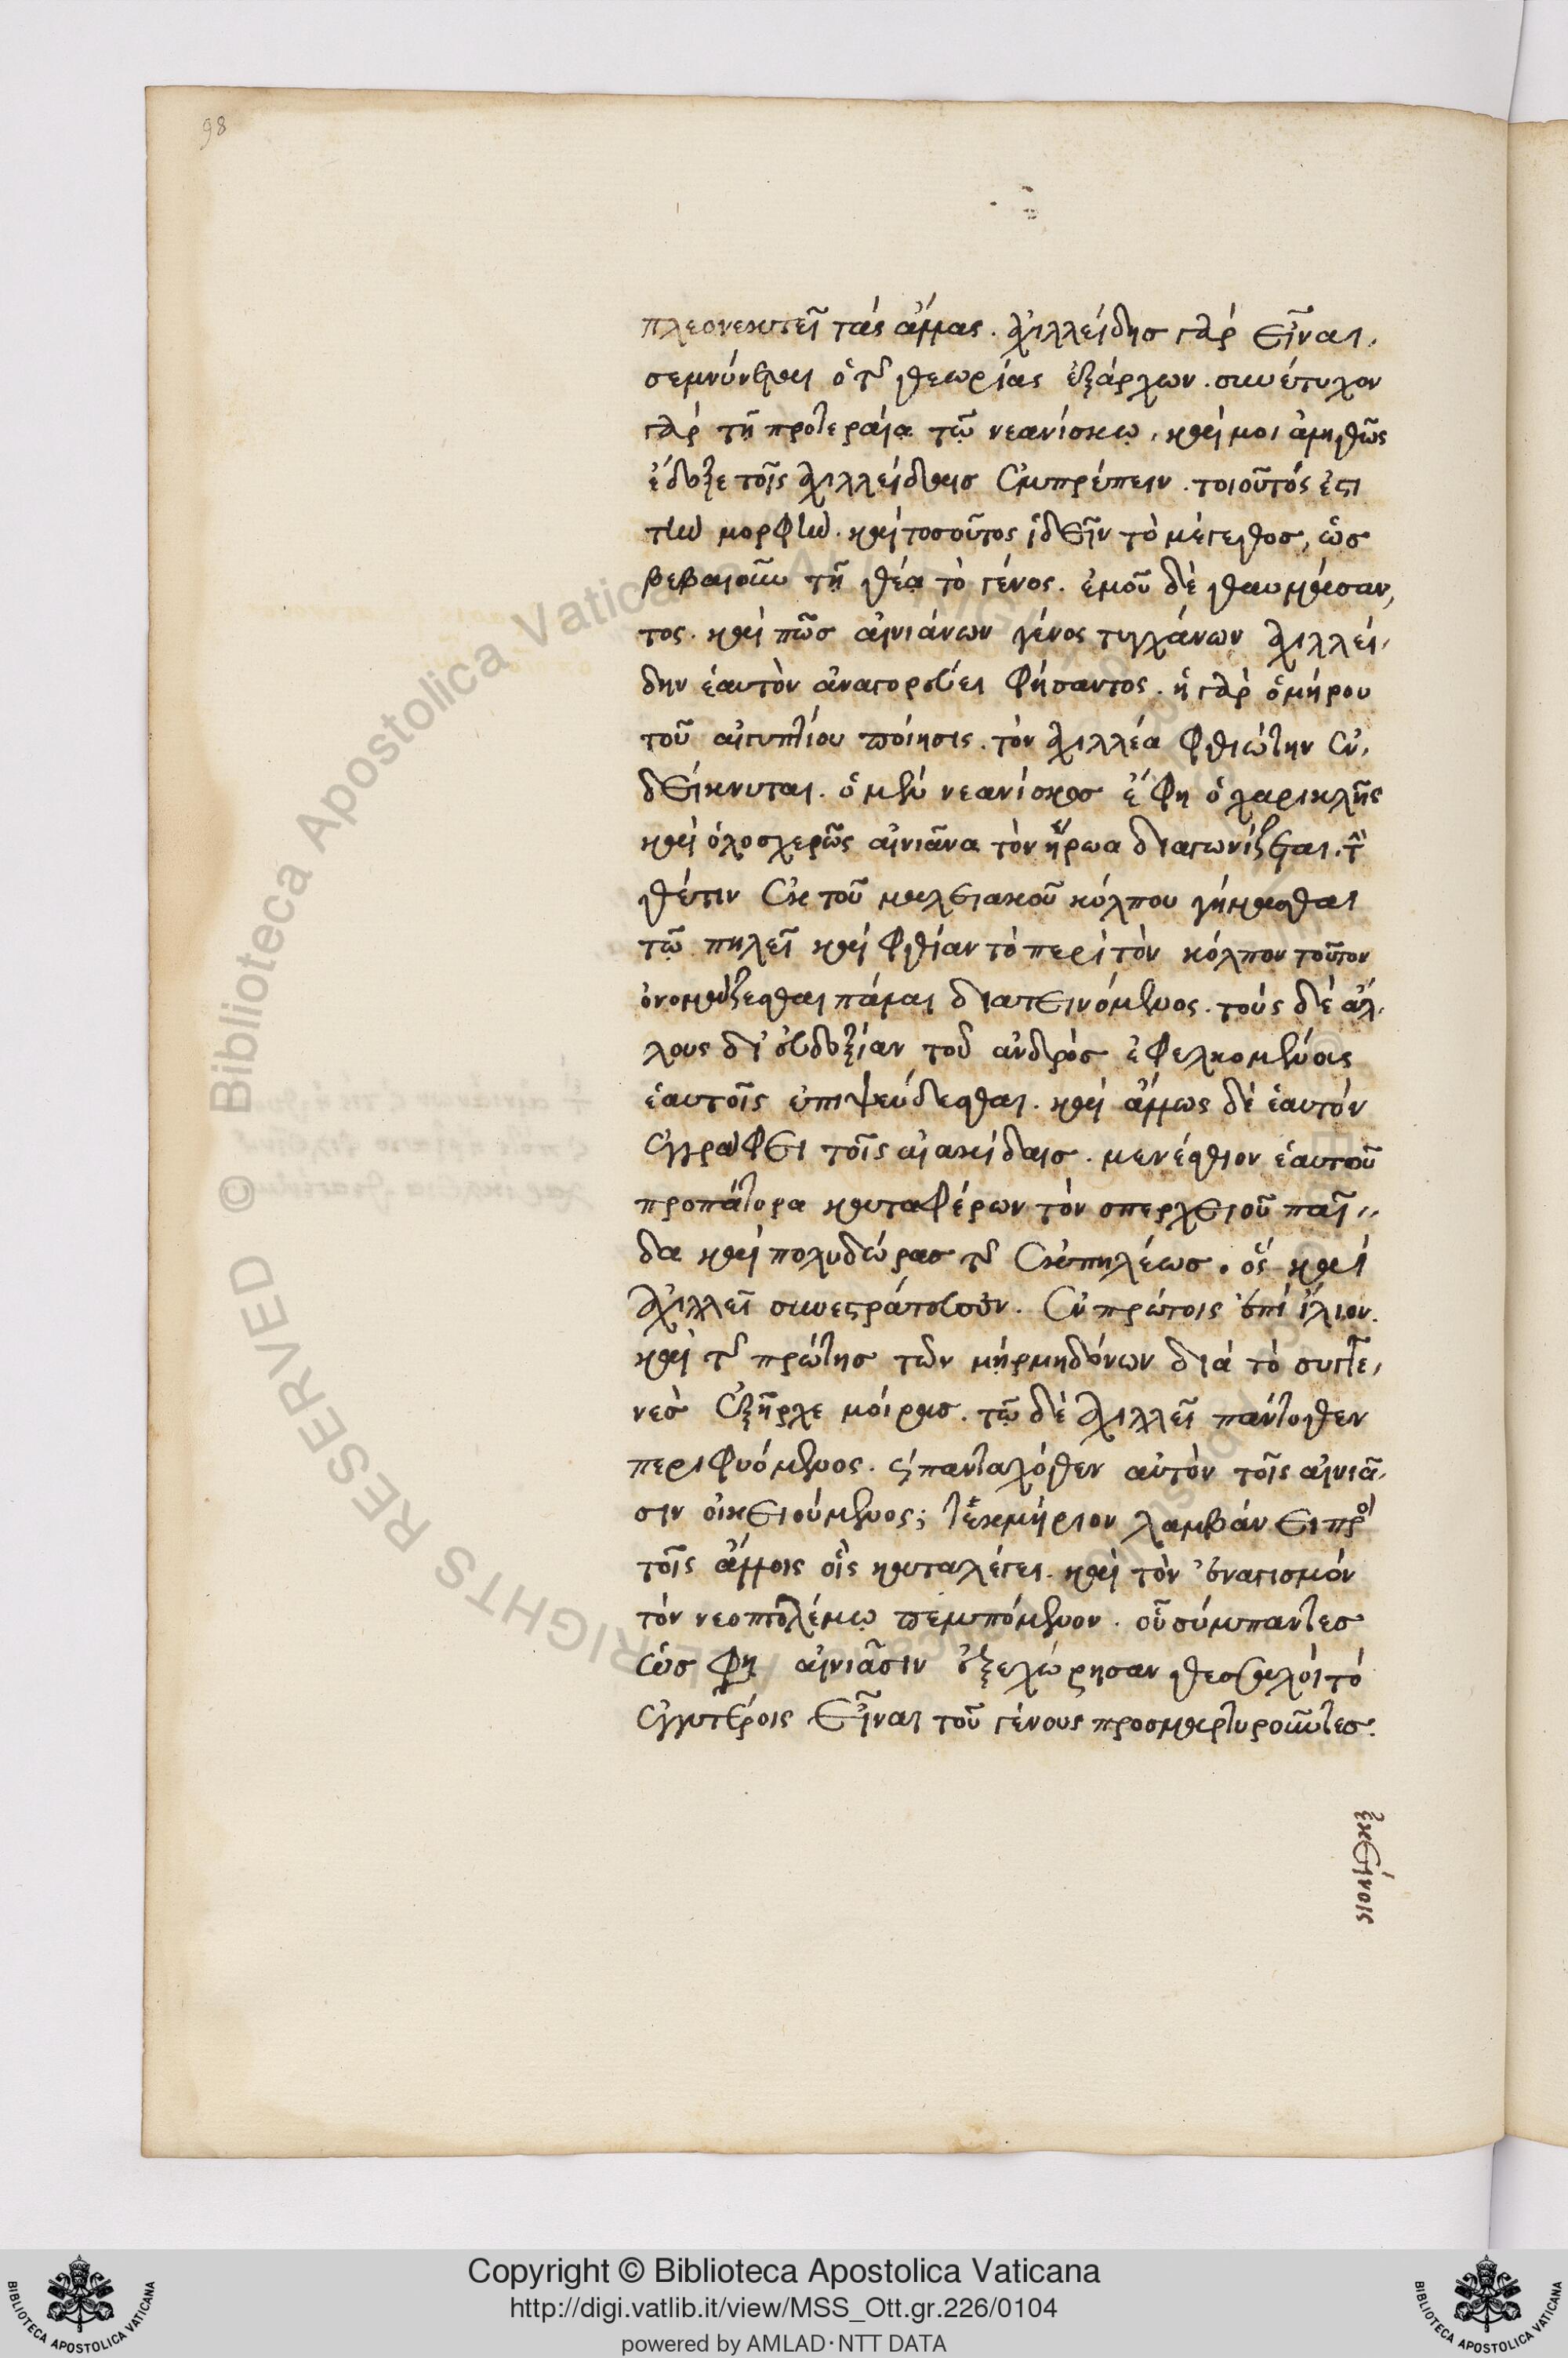 98
πλεονεκτεῖ τὰς ἄλλας. ἀχιλλείδησ γὰρ εἶναι,
σεμνύνεται ὁ τῆς θεωρίας ἐξάρχων. συνέτυχον
γὰρ τῇ προτεραία τῷ νεανίσκῳ, καί μοι ἀληθῶς
ἔδοξε τοῖς ἀχιλλείδαισ ἐμπρέπειν. τοιοῦτός ἐστι
τὴν μορφὴν. καὶ τοσοῦτος ἰδεῖν τὸ μέγεθοσ, ὡσ
βεβαιοῦν τῇ θέᾳ τὸ γένος. ἐμοῦ δὲ θαυμάσαν,
τος. καὶ πῶσ αἰνιάνων γένος τυγχάνων ἀχιλλεί,
δην ἑαυτὸν ἀναγορεύει φήσαντος. ἡ γὰρ ὁμήρου
τοῦ αἰγυπτίου ποίησις. τὸν ἀχιλλέα φθιώτην ἐν,
δείκνυται. ὁ μὲν νεανίσκοσ ἔφη ὁ χαρικλῆς
καὶ ὁλοσχερῶς αἰνιᾶνα τὸν ἥρωα διαγωνίζεται. τὴν
θέτιν ἐκ τοῦ μαλειακοῦ κόλπου γήμασθαι
τῷ πηλεῖ καὶ φθίαν τὸ περὶ τὸν κόλπον τοῦτον
ὀνομάζεσθαι πάλαι διατεινόμενος. τοὺς δὲ ἄλ,
λους δι' εὐδοξίαν τοῦ ἀνδρὸσ ἐφελκομένοις
ἑαυτοῖς ἐπιψεύδεσθαι. καὶ ἄλλως δὲ ἑαυτὸν
ἐγγράφει τοῖς αἰακίδαισ. μενέσθιον ἑαυτοῦ
προπάτορα καταφέρων τὸν σπερχειοῦ παῖ,,
δα καὶ πολυδώρασ τῆς ἐκ πηλέωσ. ὃς καὶ
ἀχιλλεῖ συνεστράτευσεν. ἐν πρώτοις ἐπὶ ἴλιον.
καὶ τῆς πρώτησ τῶν μηρμηδόνων διὰ τὸ συγγε,
νὲσ ἐξῆρχε μοίρασ. τῷ δὲ ἀχιλλεῖ πάντοθεν
περιφυόμενος. καὶ πανταχόθεν αὐτὸν τοῖς αἰνιᾶ,
σιν οἰκειούμενος; τεκμήριον λαμβάνει πρὸ
τοῖς ἄλλοις οἷς καταλέγει. καὶ τὸν ἐναγισμὸν
τὸν νεοπτολέμῳ πεμπόμενον. οὗ σύμπαντεσ
ὡσ φη αἰνιᾶσιν ἐξεχώρησαν θεσσαλοὶ τὸ
ἐγγυτέροις εἶναι τοῦ γένους προσμαρτυροῦντεσ.
ἐκείνοις
Copyright © Biblioteca Apostolica Vaticana
http://digi.vatlib.it/view/MSS_Ott.gr.226/0104
powered by AMLAD·NTT DATA